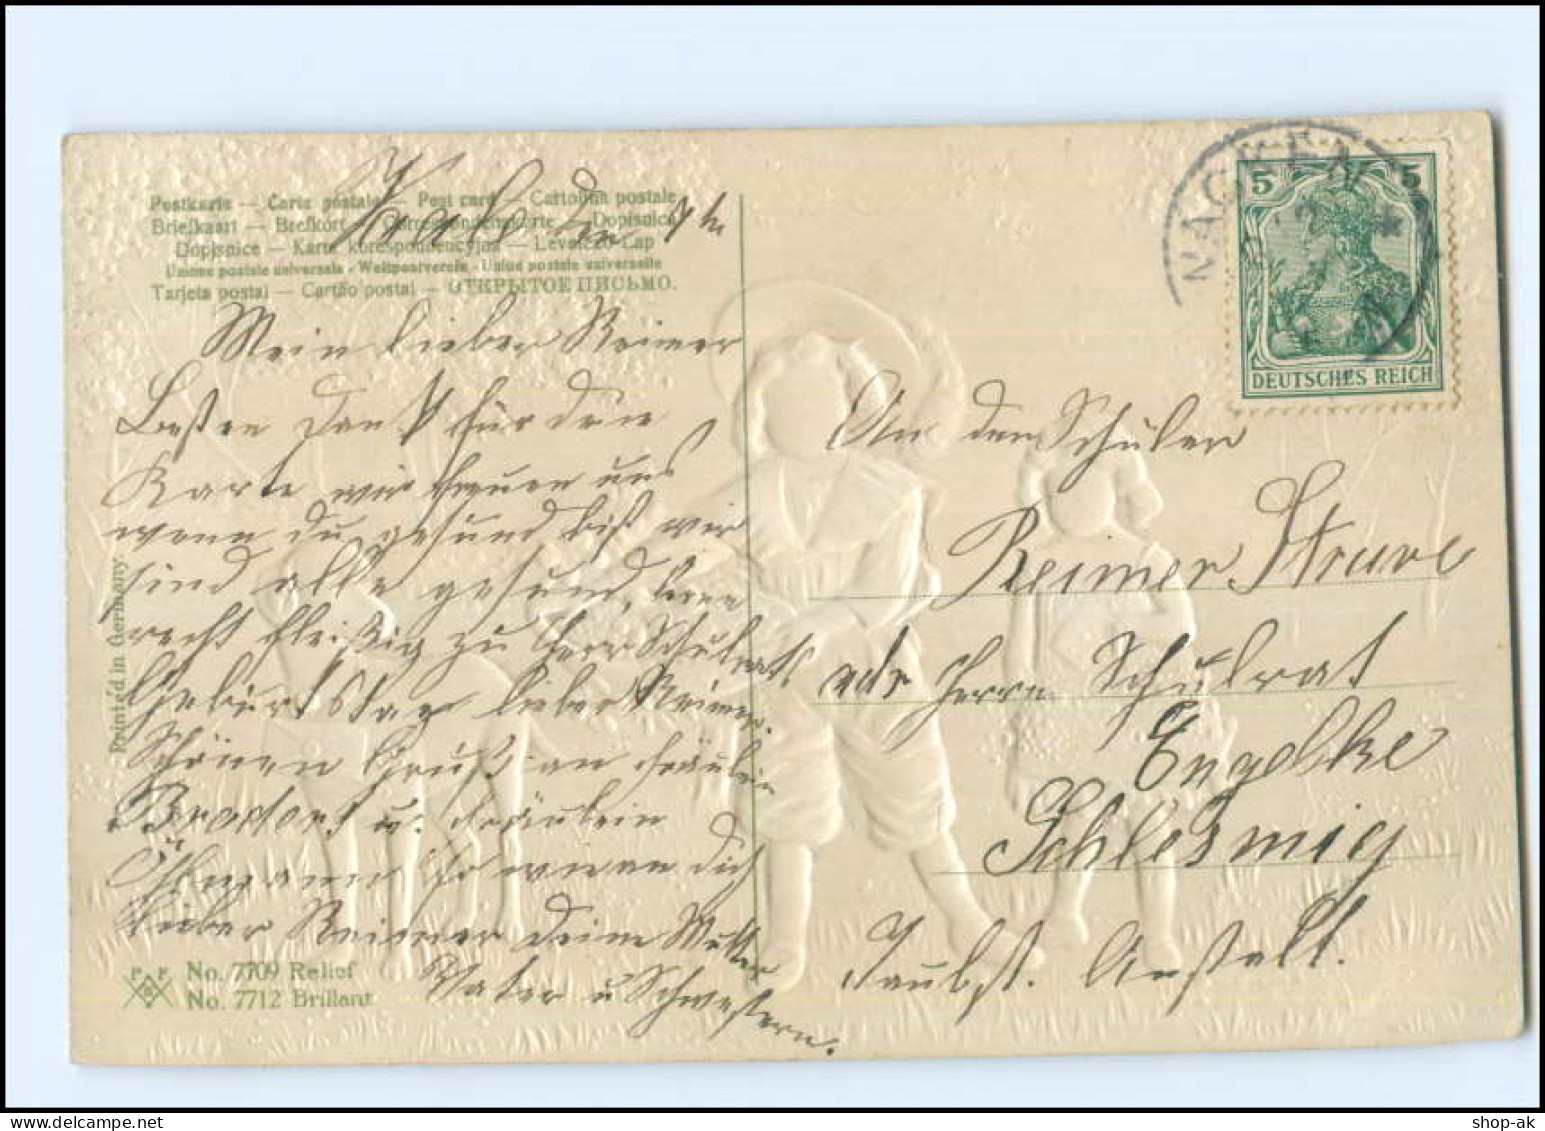 Postkarte — Carte postale — Post card — Cartolina postale
Briefkaart — Brefkort — Correspondenzkarte — Dopisnica
Dopisnice — Karta korespondencyjna — Levelező-Lap
Unione postale universale - Weltpostverein - Union postale universelle
Tarjeta postal — Cartão postal — ОТКРЫТОЕ ПИСЬМО.
den
Mein lieber Reimer
Besten Dank für dein
Karte wir freuen uns
wenn du gesund bist wir
sind alle gesund, lerne
recht fleißig zu Herr Schulrats
Geburtstag lieber Reimer.
Schönen Gruß an Fräulein
Brodorf u. Fräulein
Ihr dich
lieber Reimer deine Mutter
Vater u Schwestern.
Printed in Germany
P F B
No. 7709 Relief
No. 7712 Brillant
NACKEN
5 5
DEUTSCHES REICH
An den Schüler
Reimer Struve
adr Herrn Schulrat
Engelke
Schleswig
Taubst. Anstalt.
shop-ak